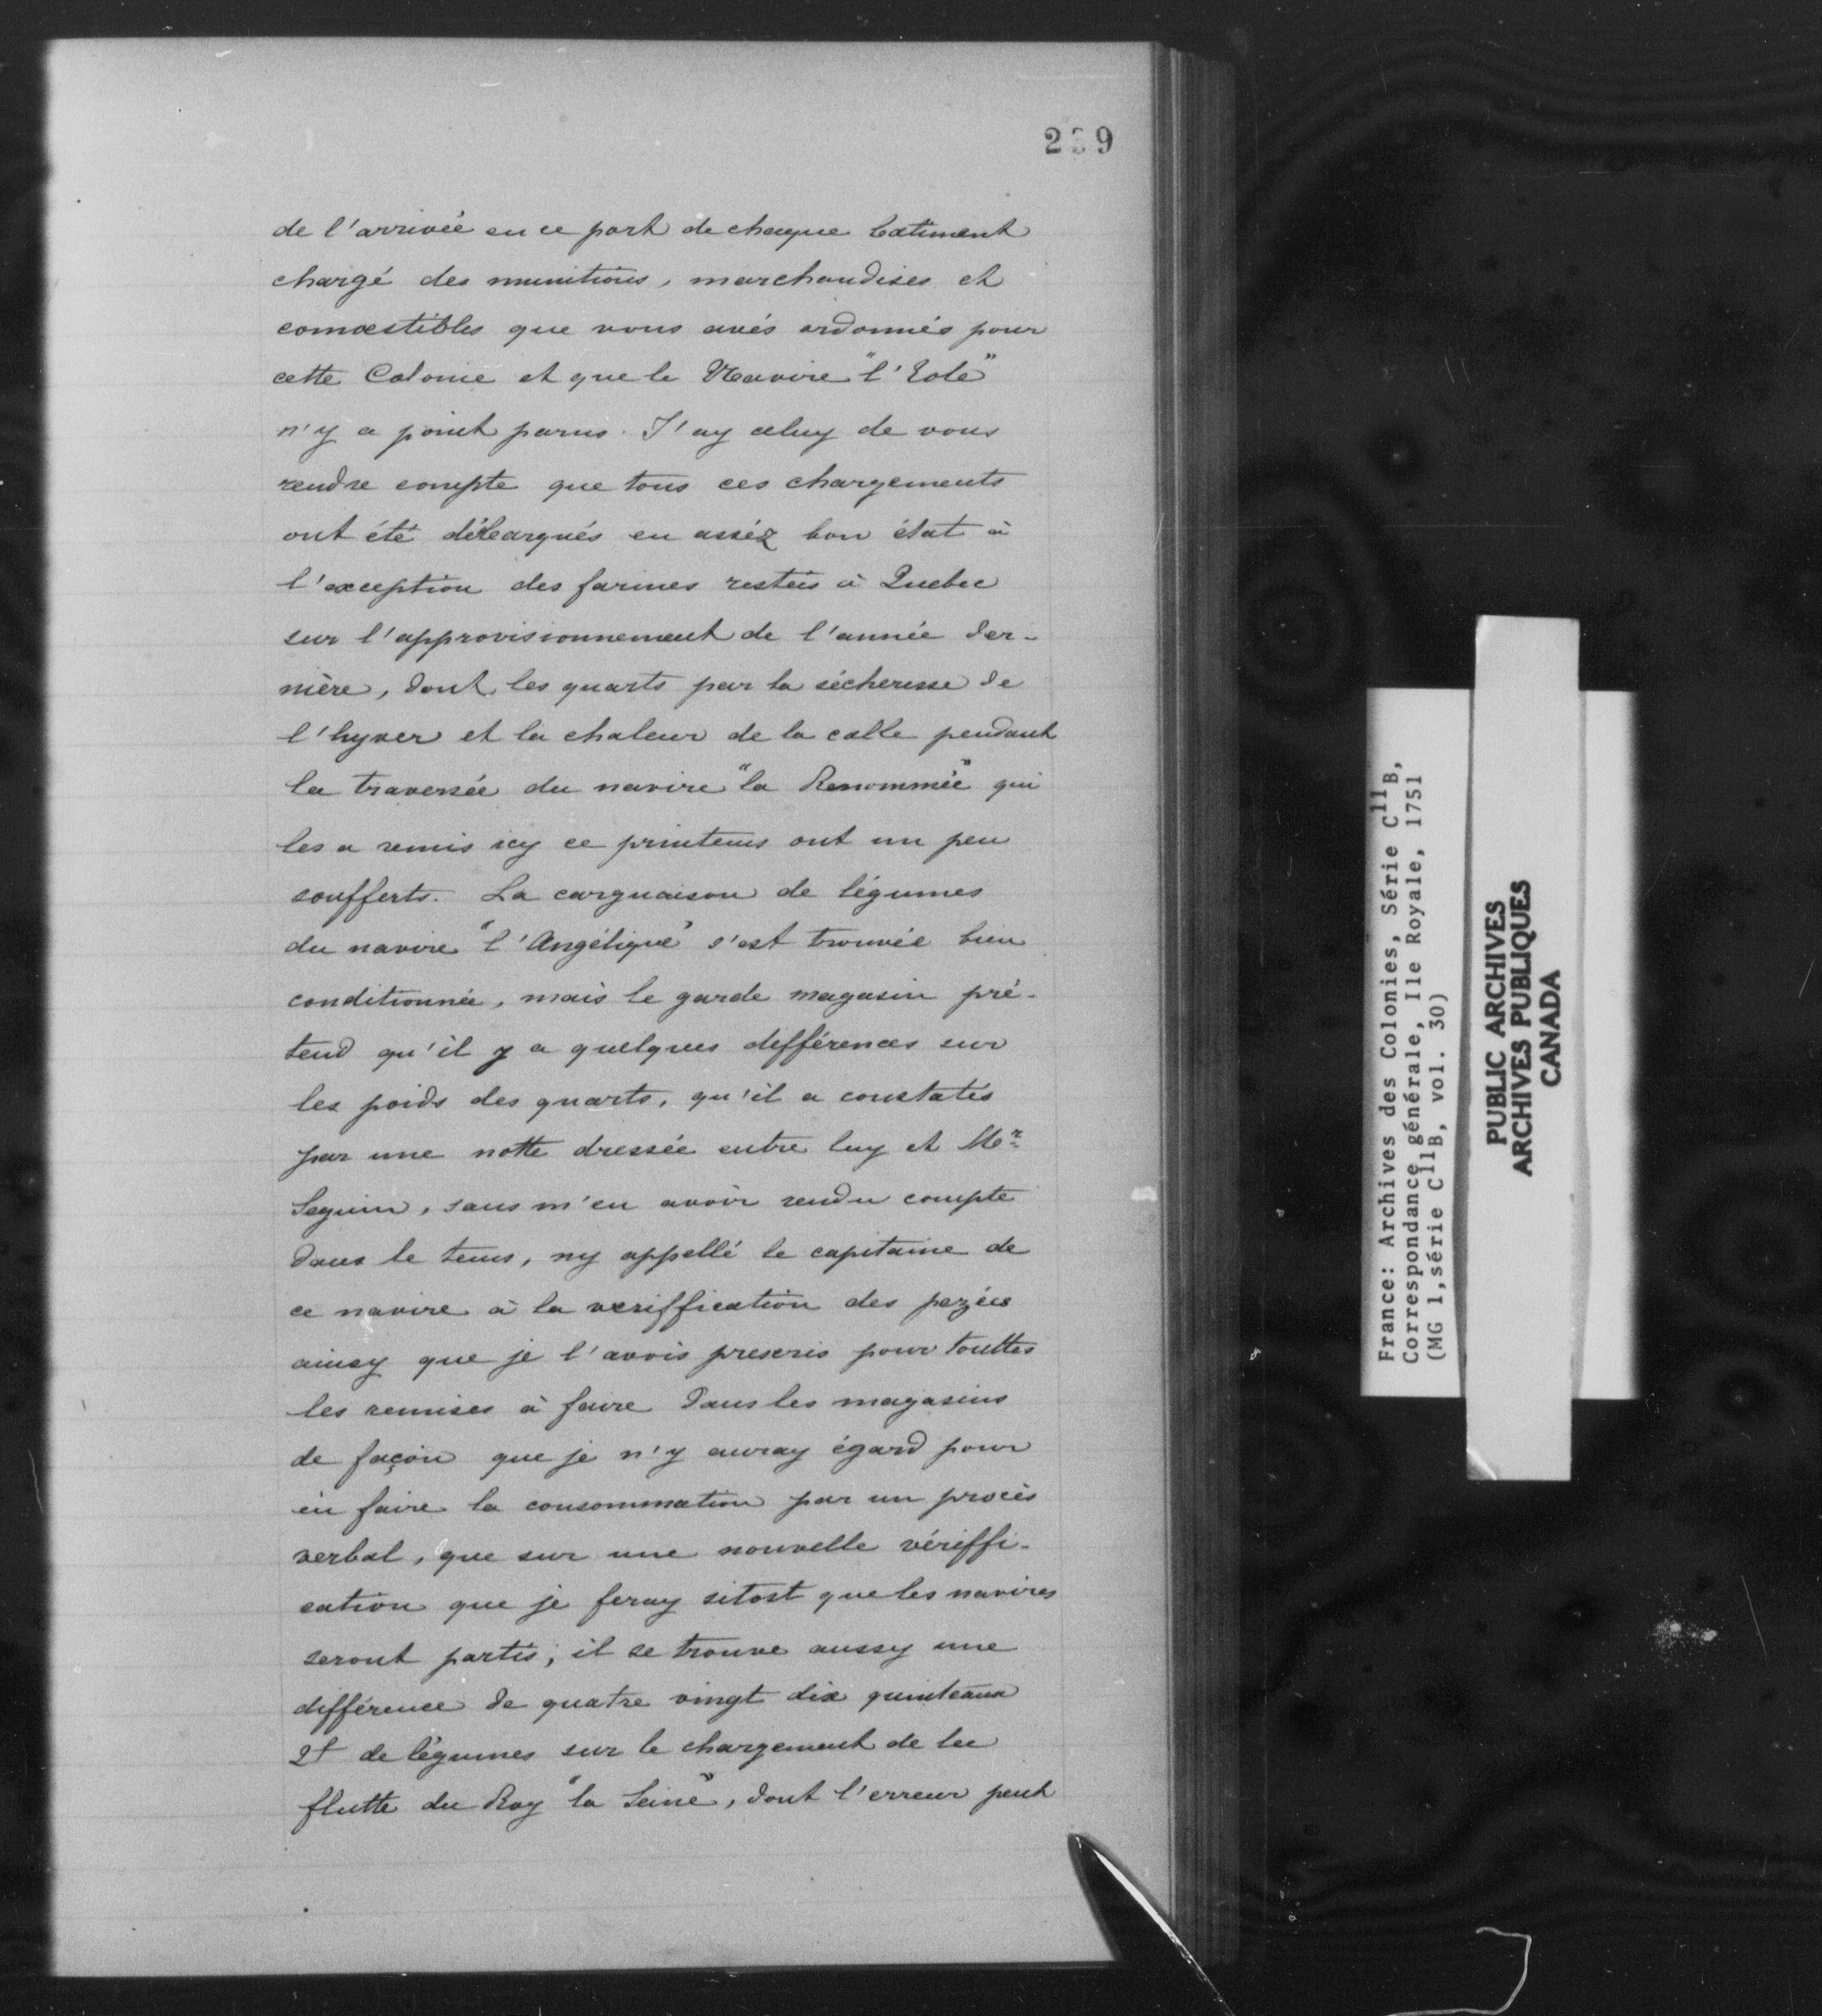 239
de l'arrivée en ce port de chaque batiment
chargé des munitions, marchandises et
comæstibles que vous avés ordonnés pour
cette Colonie et que le Navire "l'Eole"
n'y a point parus. J'ay celuy de vous
rendre compte que tous ces chargements
ont été débarqués en asséz bon état à
l'exception des farines restées à Quebec
sur l'approvisionnement de l'année der-
nière, dont les quarts par la sécheresse de
l'hyver et la chaleur de la calle pendant
la traversée du navire "la Renommée" qui
les a remis icy ce printems ont un peu
soufferts. La carguaison de légumes
du navire "l'Angélique" s'est trouvée bien
conditionnée, mais le garde magasin pré-
tend qu'il y a quelques différences sur
les poids des quarts, qu'il a constatés
par une notte dressée entre luy et Mr
Seguin, sans m'en avoir rendu compte
dans le tems, ny appellé le capitaine de
ce navire à la veriffication des pezées
ainsy que je l'avois prescris pour touttes
les remises à faire dans les magasins
de façon que je n'y auray égard pour
en faire la consommation par un procès
verbal, que sur une nouvelle vériffi-
cation que je feray sitost que les navires
seront partis; il se trouve aussy une
différence de quatre vingt dix quinteaux
de légumes sur le chargement de la
flutte du Roy "la Seine", dont l'erreur peut
France: Archives des Colonies, Série C11B,
Correspondance générale, Ile Royale, 1751
(MG 1,série C11B, vol. 30)
PUBLIC ARCHIVES
ARCHIVES PUBLIQUES
CANADA